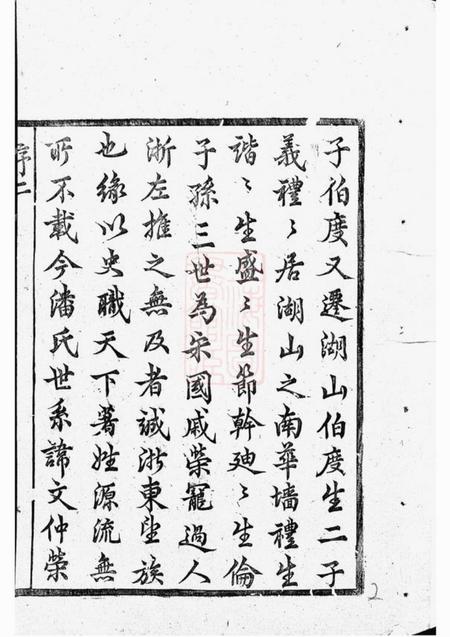 子伯度又遷湖山伯度生二子
義禮〻居湖山之南華墻禮生
諧〻生盛〻生節幹廸〻生倫
子孫三世為宋國戚榮寵過人
浙左推之無及者誠浙東望族
也緣以史職天下著姓源流無
所不載今潘氏世系諱文仲榮
序二
2